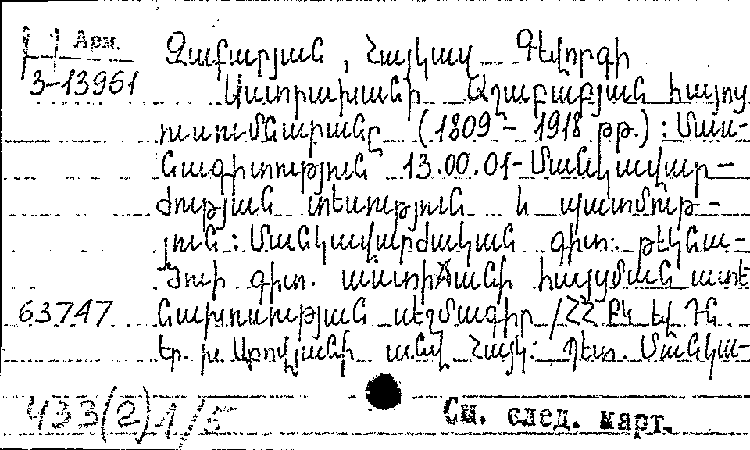 Арм.
3-13961
Զաքարյան, Հայկազ Գևորգի
Աստրախանի Աղաբաբյան հայոց
ուսումնարանը (1809 – 1918 թթ.) : Մաս-
նագիտություն 13.00.01-Մանկավար-
ժության տեսություն և պատմութ-
յուն : Մանկավարժական գիտ. թեկնա-
ծուի գիտ. աստիճանի հայցման ատե
63747 նախոսության սեղմագիր /ՀՀ ԲԿ ԵՎ ԳՆ
եր. խ. Աբովյանի անվ. Հայկ. Պետ. Մանկա-
433(2)1/5
См. след. карт.